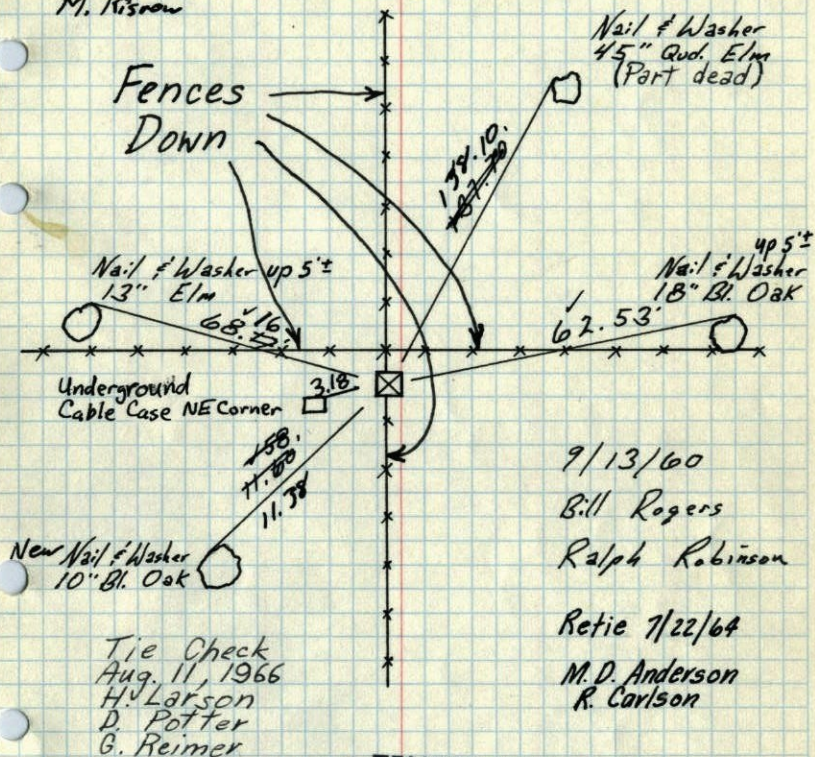 M. Kisrow
Nail & Washer
45" Qud. Elm
(Part dead)
Fences
Down
138.10.
Nail & Washer up 5'±
13" Elm
68.16
up 5'±
Nail & Washer
18" Bl. Oak
62.53'
3.18
Underground
Cable Case NE Corner
158.
11.60
11.38
New Nail & Washer
10" Bl. Oak
9/13/60
Bill Rogers
Ralph Robinson
Retie 7/22/64
M.D. Anderson
R. Carlson
Tie Check
Aug. 11, 1966
H. Larson
D. Potter
G. Reimer